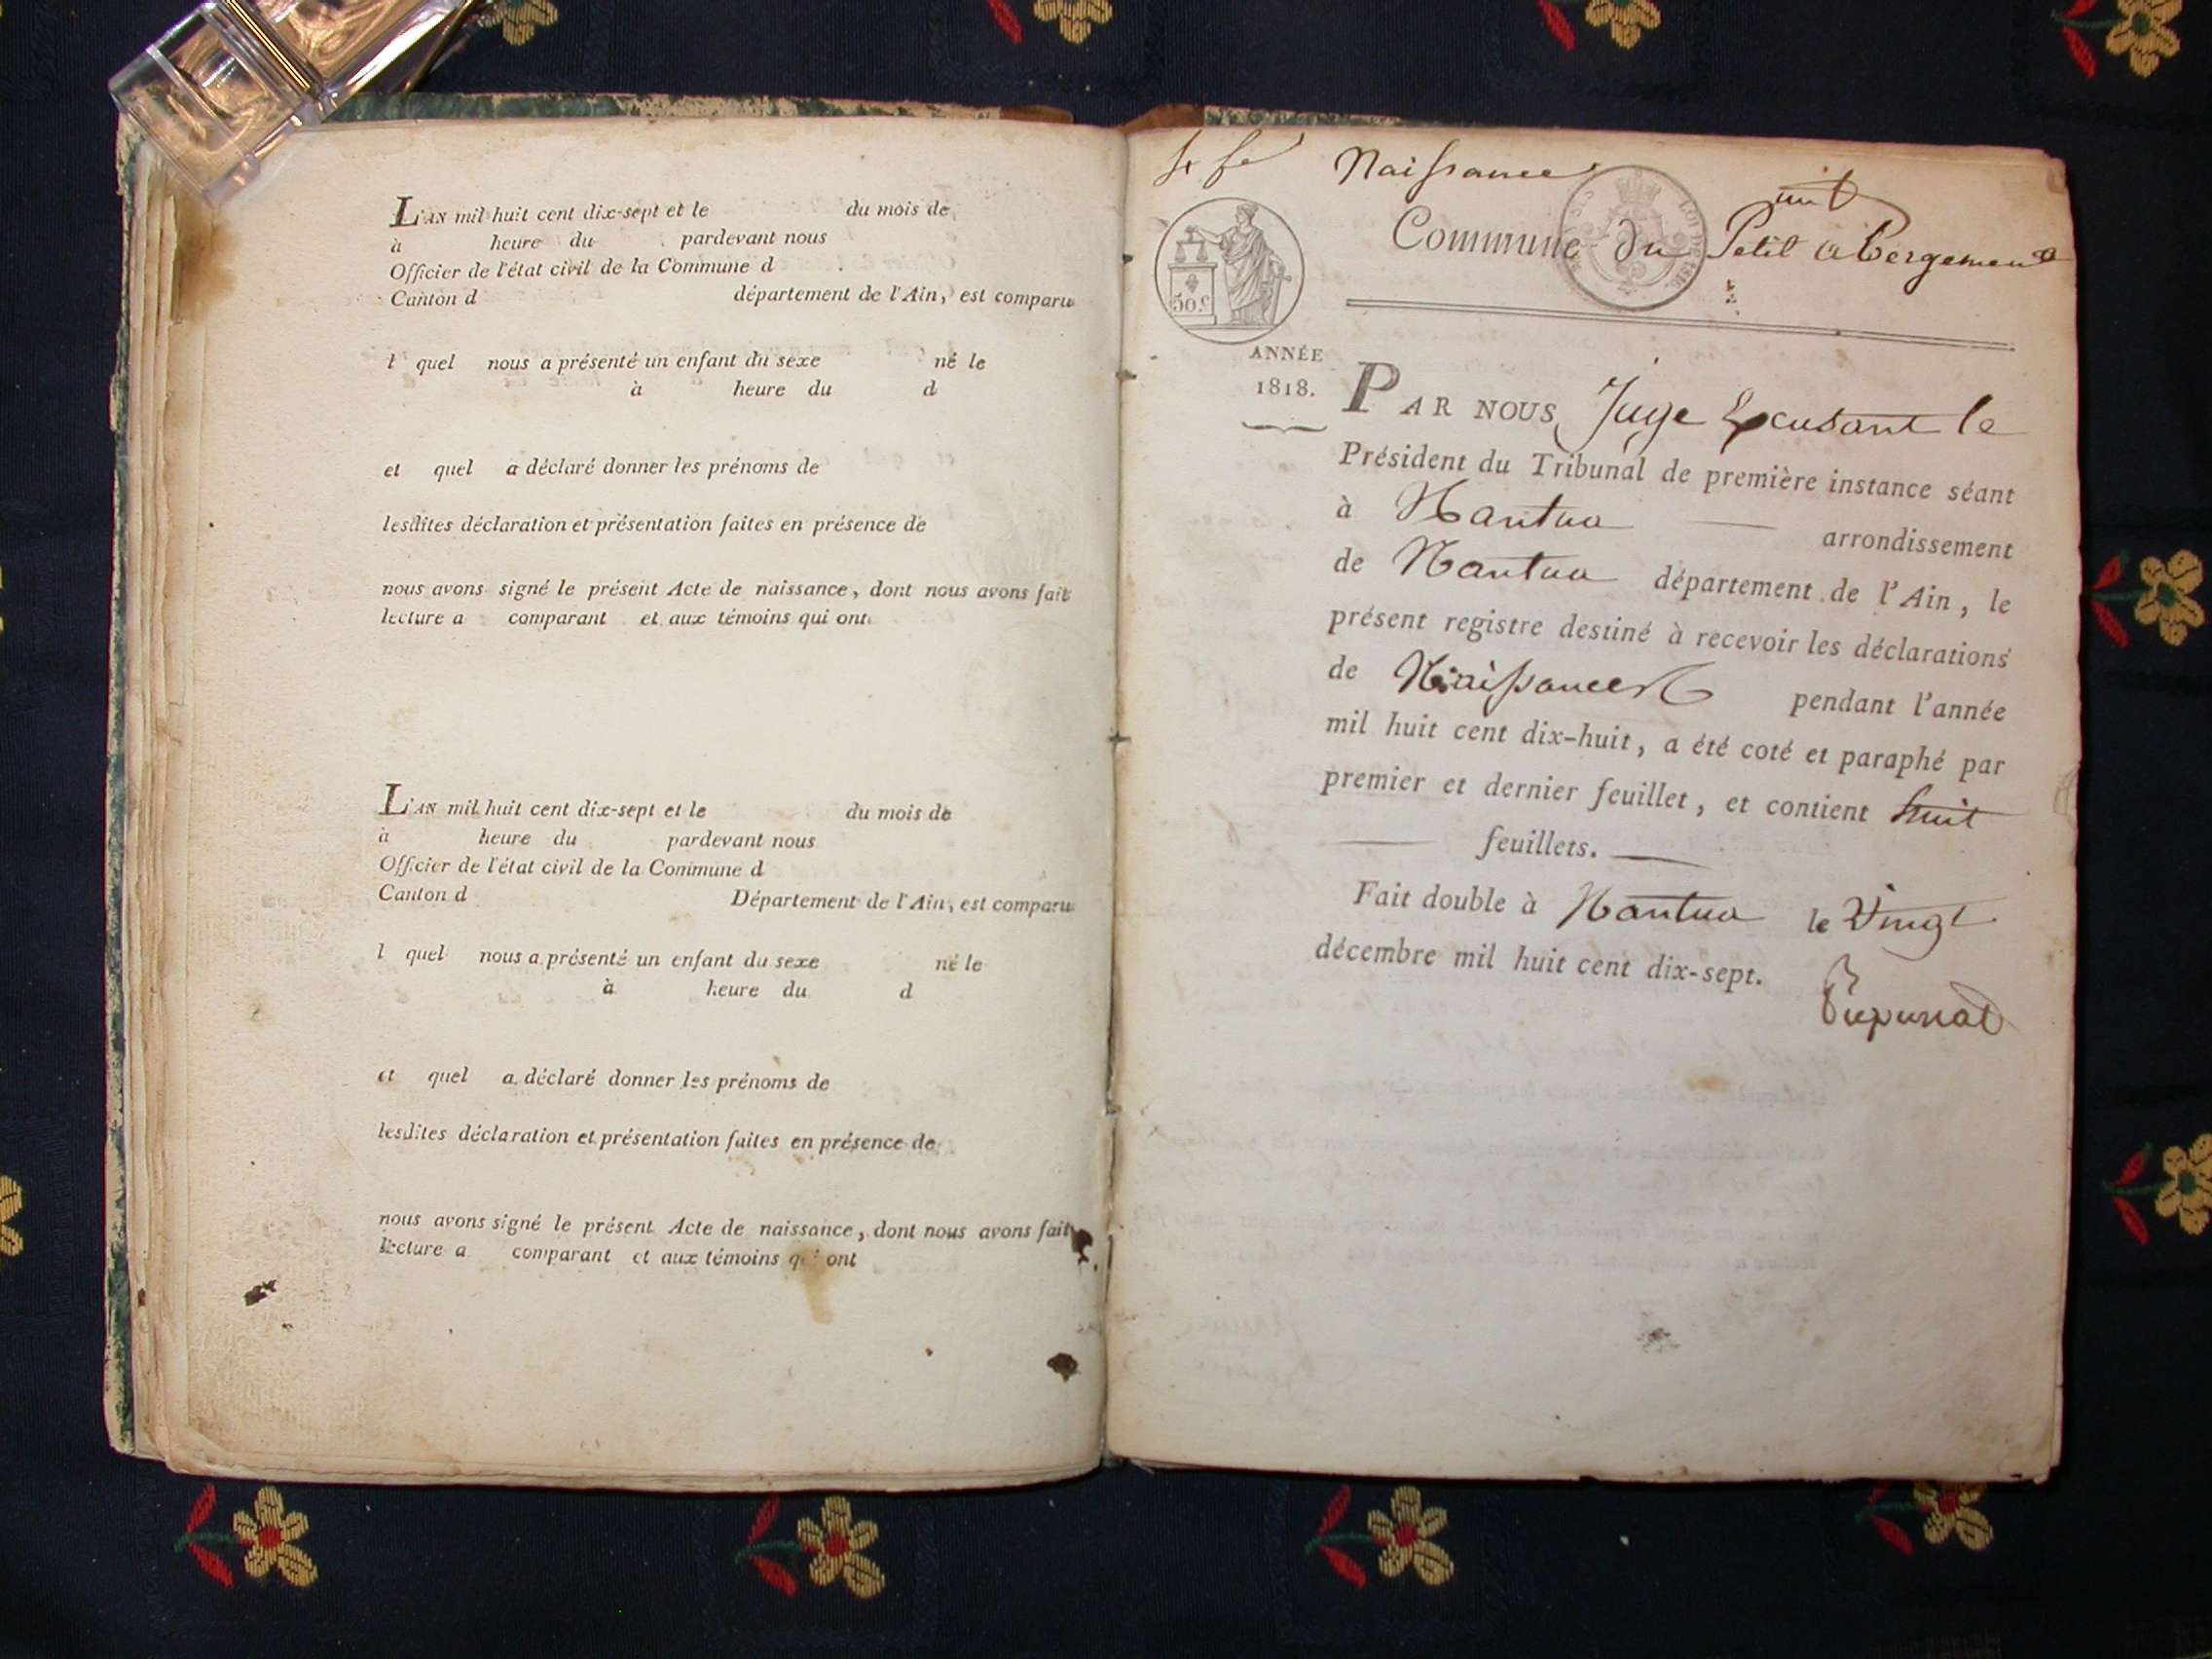 L'AN mil huit cent dix-sept et le du mois de
à heure du pardevant nous
Officier de l'état civil de la Commune d
Canton d département de l'Ain, est comparu
l quel nous a présenté un enfant du sexe né le
à heure du d
et quel a déclaré donner les prénoms de
lesdites déclaration et présentation faites en présence de
nous avons signé le présent Acte de naissance, dont nous avons fait
lecture a comparant et aux témoins qui ont
L'AN mil huit cent dix-sept et le du mois de
à heure du pardevant nous
Officier de l'état civil de la Commune d
Canton d Département de l'Ain, est comparu
l quel nous a présenté un enfant du sexe né le
à heure du d
et quel a déclaré donner les prénoms de
lesdites déclaration et présentation faites en présence de
nous avons signé le présent Acte de naissance, dont nous avons fait
lecture a comparant et aux témoins qui ont
Naissance
Commune du Petit abergement
50 c
ANNÉE
1818.
PAR NOUS Juge le
Président du Tribunal de première instance séant
à Nantua arrondissement
de Nantua département de l'Ain, le
présent registre destiné à recevoir les déclarations
de Naissances pendant l'année
mil huit cent dix-huit, a été coté et paraphé par
premier et dernier feuillet, et contient huit
feuillets.
Fait double à Nantua le Vingt
décembre mil huit cent dix-sept.